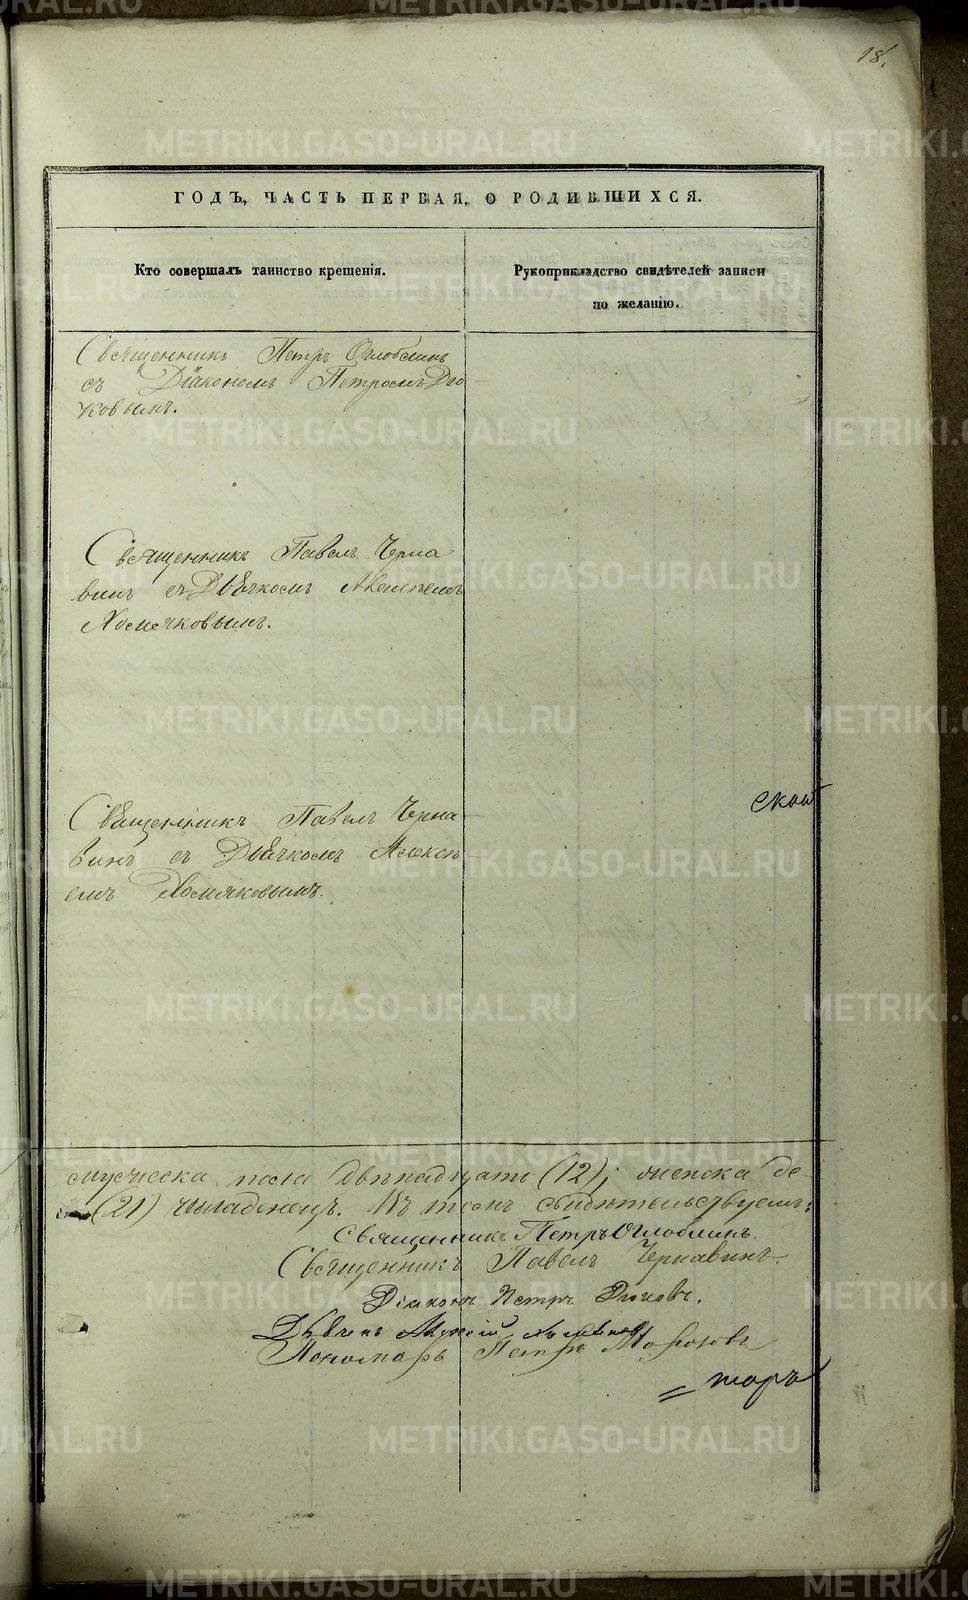 18.
ГОДЪ, ЧАСТЬ ПЕРВАЯ, О РОДИВШИХСЯ.
Кто совершалъ таинство крещенія.
Рукоприкладство свидѣтелей записи
по желанію.
Священникъ Петръ Оглоблинъ
съ Діакономъ Петромъ
ковымъ.
Священникъ Павелъ Черна
винъ съ Дьячкомъ Алексѣемъ
Хомяковымъ.
Священникъ Павелъ Черна
винъ съ Дьячкомъ Алексѣ
емъ Хомяковымъ.
ской
мужеска пола двѣнадцать (12); женска де-
(21) младенецъ. Въ томъ свидѣтельствуемъ:
Священникъ Петръ Оглоблинъ.
Священникъ Павелъ Чернавинъ.
Діаконъ Петръ
Дьячекъ Алексій Хомяковъ
Пономарь Петръ Морозовъ
= торъ
METRIKI.GASO-URAL.RU